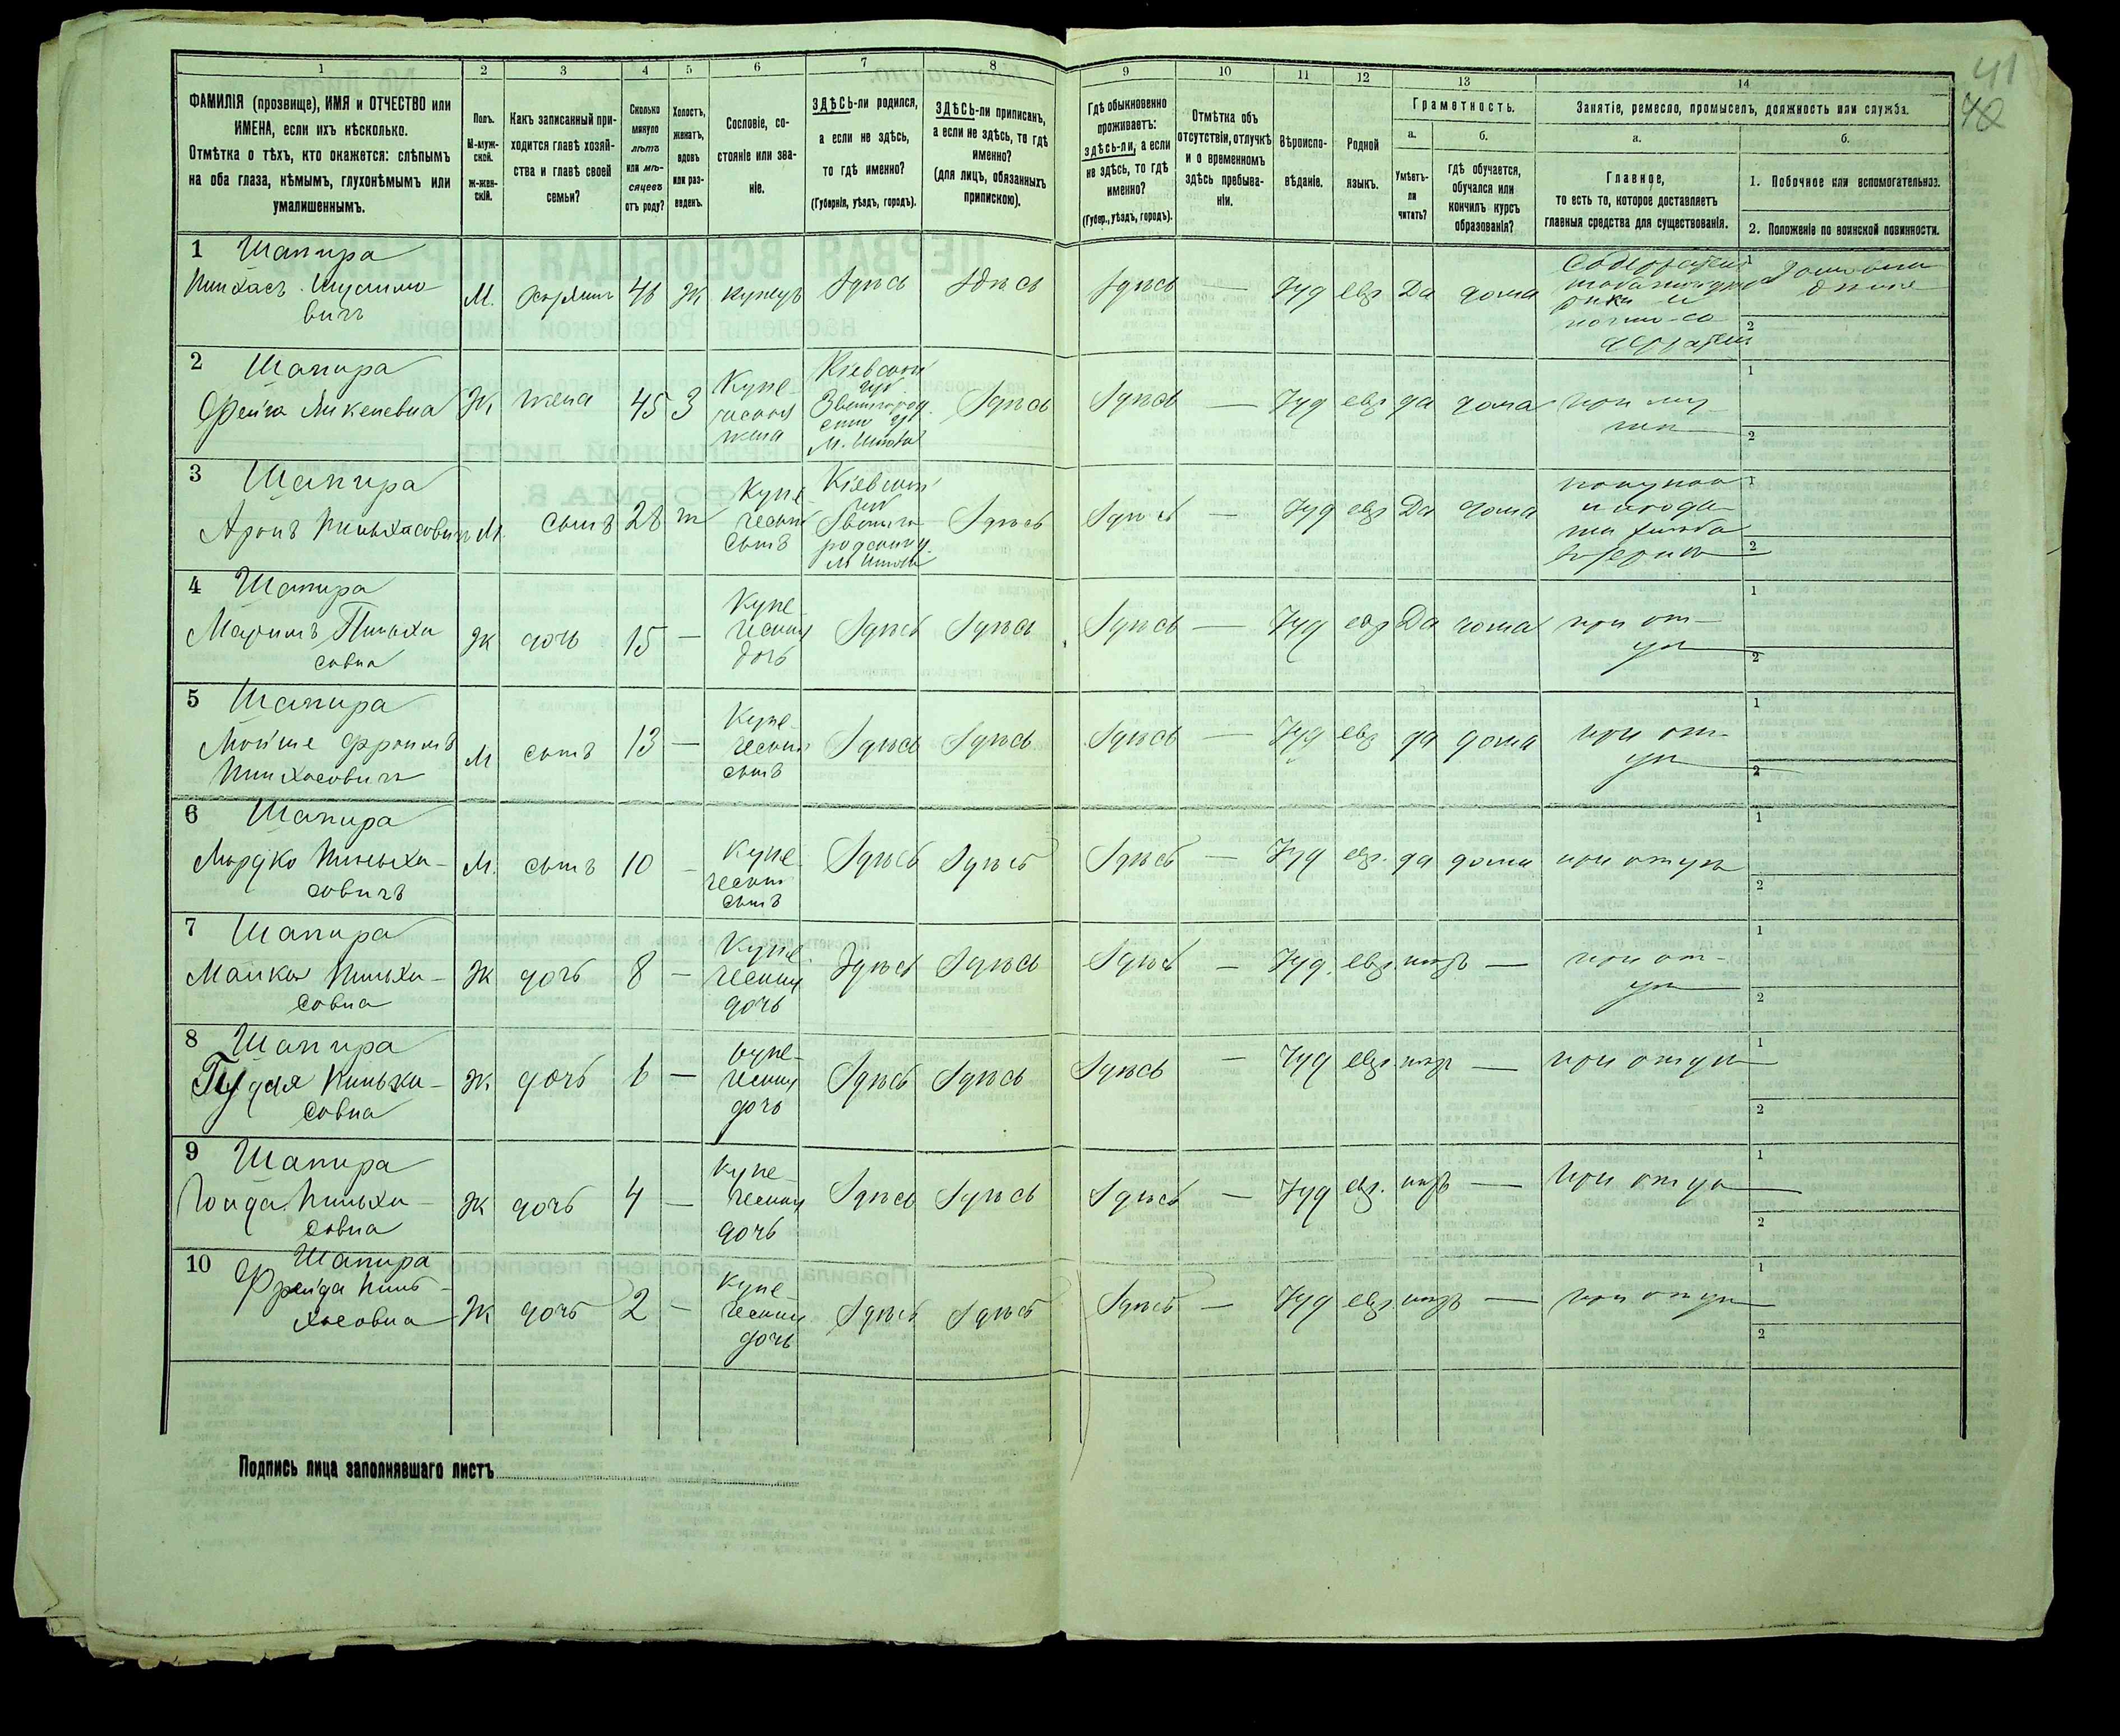 41
42
1 2 3 4 5 6 7 8 9 10 11 12 13 14
ФАМИЛІЯ (прозвище), ИМЯ и ОТЧЕСТВО или
ИМЕНА, если ихъ нѣсколько.
Отмѣтка о тѣхъ, кто окажется: слѣпымъ
на оба глаза, нѣмымъ, глухонѣмымъ или
умалишеннымъ.
Полъ.
М-муж-
ской.
Ж-жен-
скій.
Какъ записанный при-
ходится главѣ хозяй-
ства и главѣ своей
семьи?
Сколько
минуло
лѣтъ
или мѣ-
сяцевъ
отъ роду?
Холостъ,
женатъ,
вдовъ
или раз-
веденъ.
Сословіе, со-
стояніе или зва-
ніе.
ЗДѢСЬ-ли родился,
а если не здѣсь,
то гдѣ именно?
(Губернія, уѣздъ, городъ).
ЗДѢСЬ-ли приписанъ,
а если не здѣсь, то гдѣ
именно?
(для лицъ, обязанныхъ
припискою).
Гдѣ обыкновенно
проживаетъ:
здѣсь-ли, а если
не здѣсь, то гдѣ
именно?
(Губер., уѣздъ, городъ).
Отмѣтка объ
отсутствіи, отлучкѣ
и о временномъ
здѣсь пребыва-
ніи.
Вѣроиспо-
вѣданіе.
Родной
языкъ.
Грамотность.
а.
Умѣетъ-
ли
читать?
б.
гдѣ обучается,
обучался или
кончилъ курсъ
образованія?
Занятіе, ремесло, промыселъ, должность или служба.
а.
Главное,
то есть то, которое доставляетъ
главныя средства для существованія.
б.
1. Побочное или вспомогательное.
2. Положеніе по воинской повинности.
1 Шапира
Пинхасъ
вичъ
М. хозяинъ 46 Ж купецъ Здѣсь Здѣсь Здѣсь — Іуд евр Да дома
1
2
2 Шапира
Фейга
Ж жена 45 З
Купе-
ческая
жена
Кіевской
губ
Здѣсь Здѣсь — Іуд евр да дома
при му-
жѣ
1
2
3 Шапира
Аронъ Пиньхасовичъ
М. сынъ 28
Купе-
ческій
сынъ
Кіевской
губ
Здѣсь Здѣсь — Іуд евр Да дома
1
2
4 Шапира
Маримъ Пиньха
совна
Ж дочь 15 —
Купе-
ческая
дочь
Здѣсь Здѣсь Здѣсь — Іуд евр Да дома
при от-
цѣ
1
2
5 Шапира
Мойше Фроимъ
Пинхасовичъ
М сынъ 13 —
Купе-
ческій
сынъ
Здѣсь Здѣсь Здѣсь — Іуд евр да дома
при от-
цѣ
1
2
6 Шапира
Мордко Пиньха-
совичъ
М. сынъ 10 —
Купе-
ческій
сынъ
Здѣсь Здѣсь Здѣсь — Іуд евр. да дома при отцѣ
1
2
7 Шапира
Малка Пиньха-
совна
Ж дочь 8 —
Купе-
ческая
дочь
Здѣсь Здѣсь Здѣсь — Іуд. евр. нѣтъ —
при от-
цѣ
1
2
8 Шапира
Пиньха-
совна
Ж. дочь 6 —
Купе-
ческая
дочь
Здѣсь Здѣсь Здѣсь — Іуд евр. нѣтъ — при отцѣ
1
2
9 Шапира
Пиньха-
совна
Ж дочь 4 —
Купе-
ческая
дочь
Здѣсь Здѣсь Здѣсь — Іуд евр. нѣтъ — при отцѣ
1
2
10 Шапира
Фрейда Пинь-
хасовна
Ж дочь 2 —
Купе-
ческая
дочь
Здѣсь Здѣсь Здѣсь — Іуд евр нѣтъ — при отцѣ
1
2
Подпись лица заполнявшаго листъ